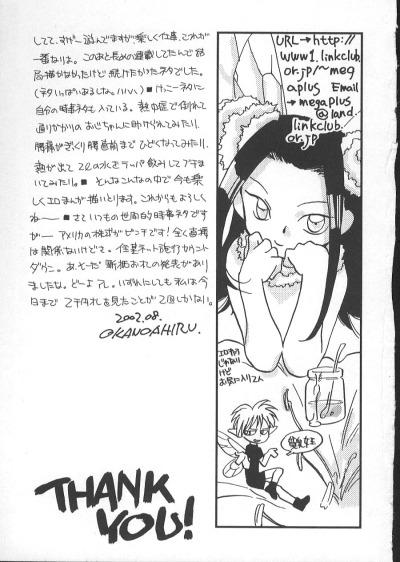 してて、すげー遊んでますが、楽しく仕事、これが
一番なりよ。このあと長めの連載してたんで結
局描かなかったけど続けたかったネタでした。
(ネタいっぱいあるしな。ハハハ)■けっこーネタに
自分の時事ネタも入っている。熱中症で倒れて
通りがかりのおじちゃんに助けられてみたり、
腰痛がぎっくり腰直前までひどくなってみたり、
熱が出て2ℓの水をラッパ飲みして
いてみたり。■そんなこんなの中で今も楽
しくエロまんが描いとります。これからもよろしく
ねー■さていつもの世間的時事ネタです
がーアメリカの株式がピンチです!全く直接
は関係ないけどネ。住基ネット施行カウント
ダウン。あ、そーだ新札お札の発表があり
ましたな。どーよアレ。いずれにしても私は今
日まで2千円札を見たことが2回しかない。
2002.08.
@KANOAHIRU.
THANK
YOU!
URL→http://
www1.linkclub.
or.jp/~meg
aplus Email
→megaplus
@land.
linkclub.
or.jp
エロまんが
じゃない
けど
お気に入りでん